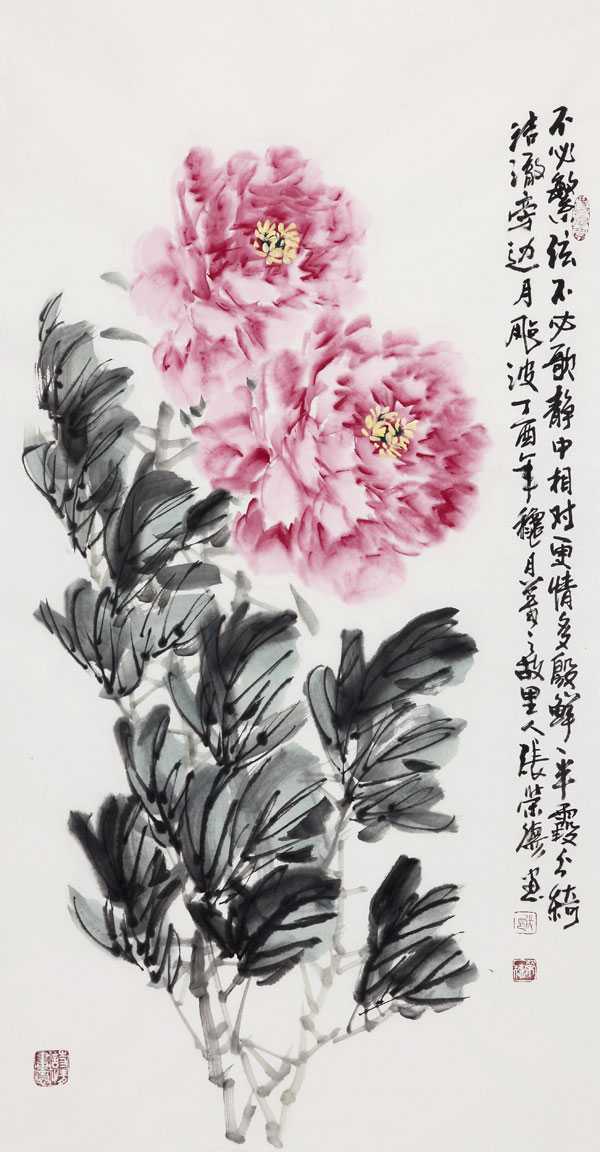 不必繁弦不必歌静中相对更情多殷鲜一半霞分綺
洁澈旁边月飐波丁酉年穐月羲之故里人張荣画